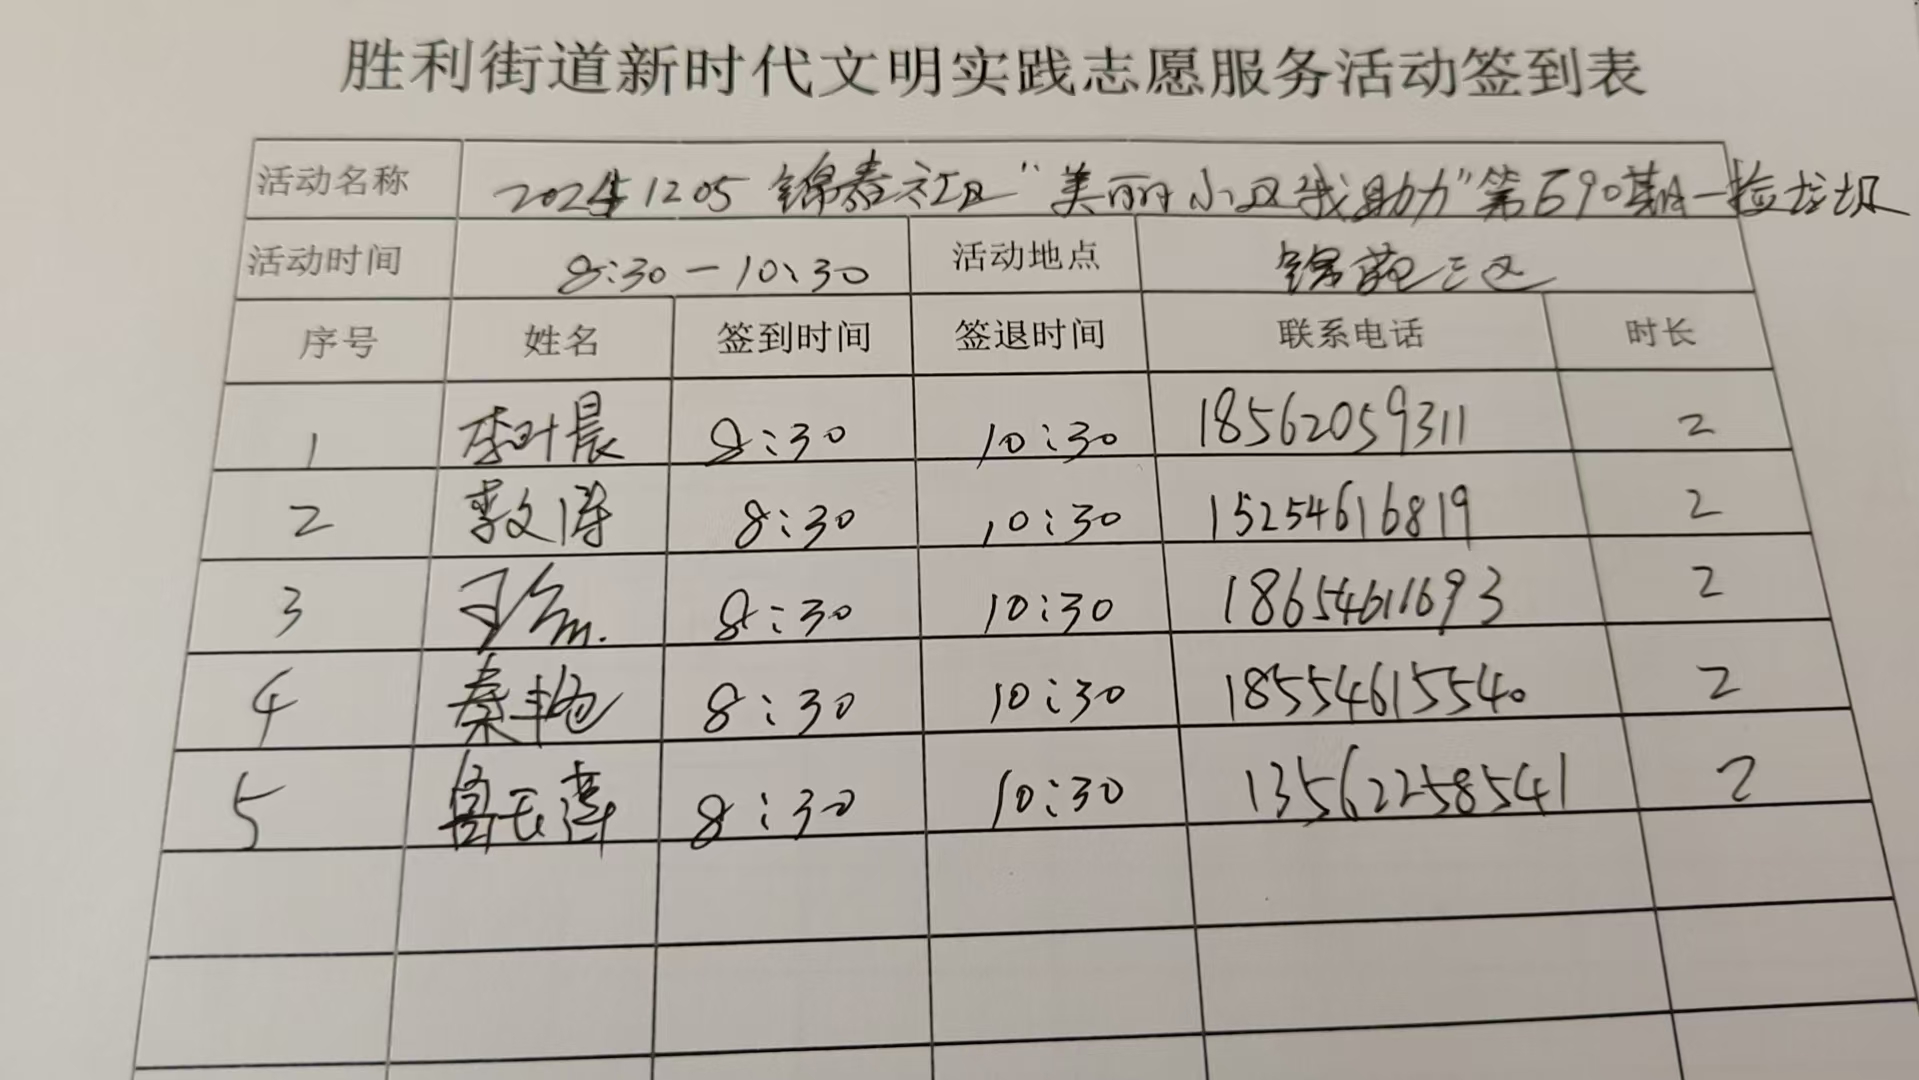 胜利街道新时代文明实践志愿服务活动签到表
活动名称 20241205 锦春社区“美丽小区我助力”第690期—捡垃圾
活动时间 8:30—10:30 活动地点 锦苑三区
序号 姓名 签到时间 签退时间 联系电话 时长
1 李叶晨 8:30 10:30 18562059311 2
2 李文涛 8:30 10:30 15254616819 2
3 8:30 10:30 18654611693 2
4 秦艳 8:30 10:30 18554615540 2
5 鲁玉莲 8:30 10:30 13562258541 2